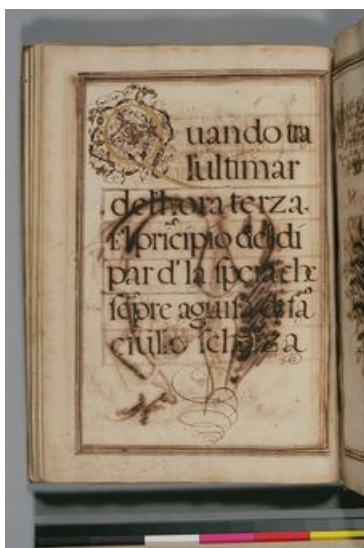 Quando tra
l'ultimar
dell'hora terza.
e'l pricipio del di
par d'la spera che
sepre aguisa di fa
ciullo scherza